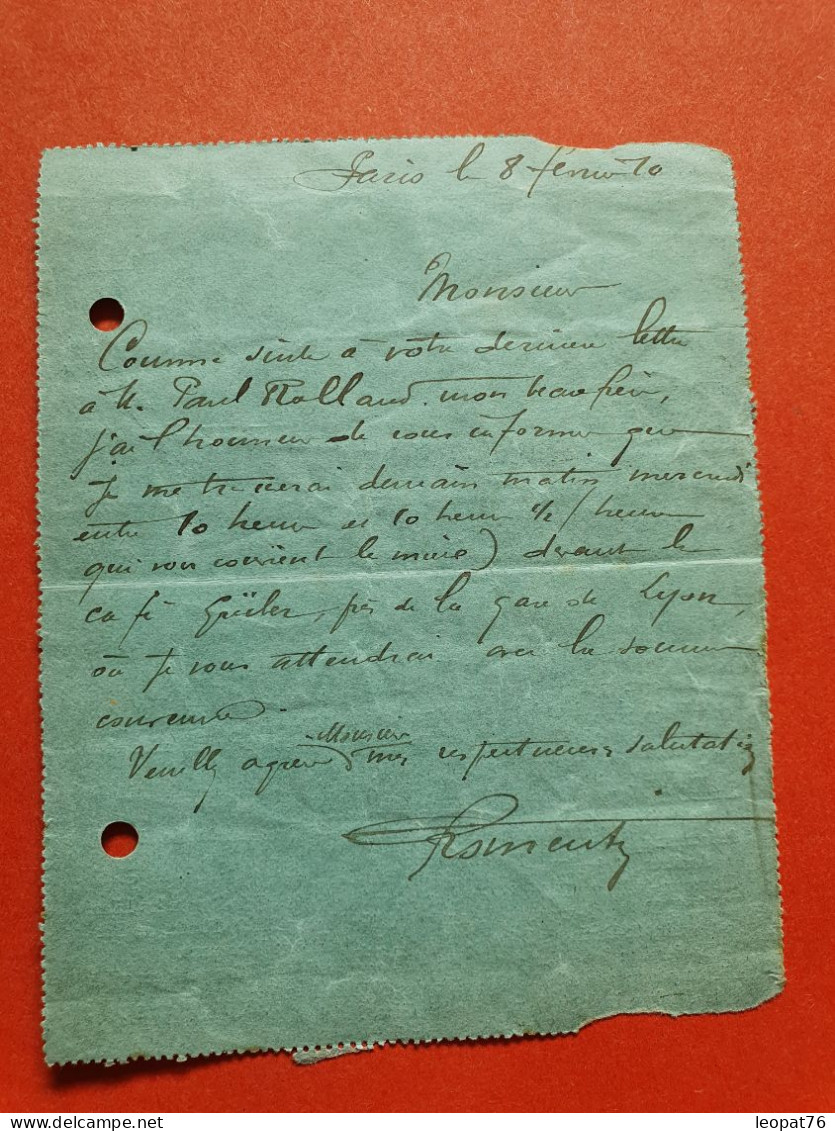 Paris le 8 février 10
Monsieur
Comme suite à votre dernière lettre
à M. Paul Rolland mon beau frère,
j'ai l'honneur de vous informer que
je me trouverai demain matin mercredi
entre 10 heures et 10 heures 1/2 (heure
qui vous convient le mieux) devant le
café près de la gare de Lyon,
où je vous attendrai avec la somme
convenue.
Monsieur
Veuillez agréer mes respectueuses salutations
leopat76
delcampe.net